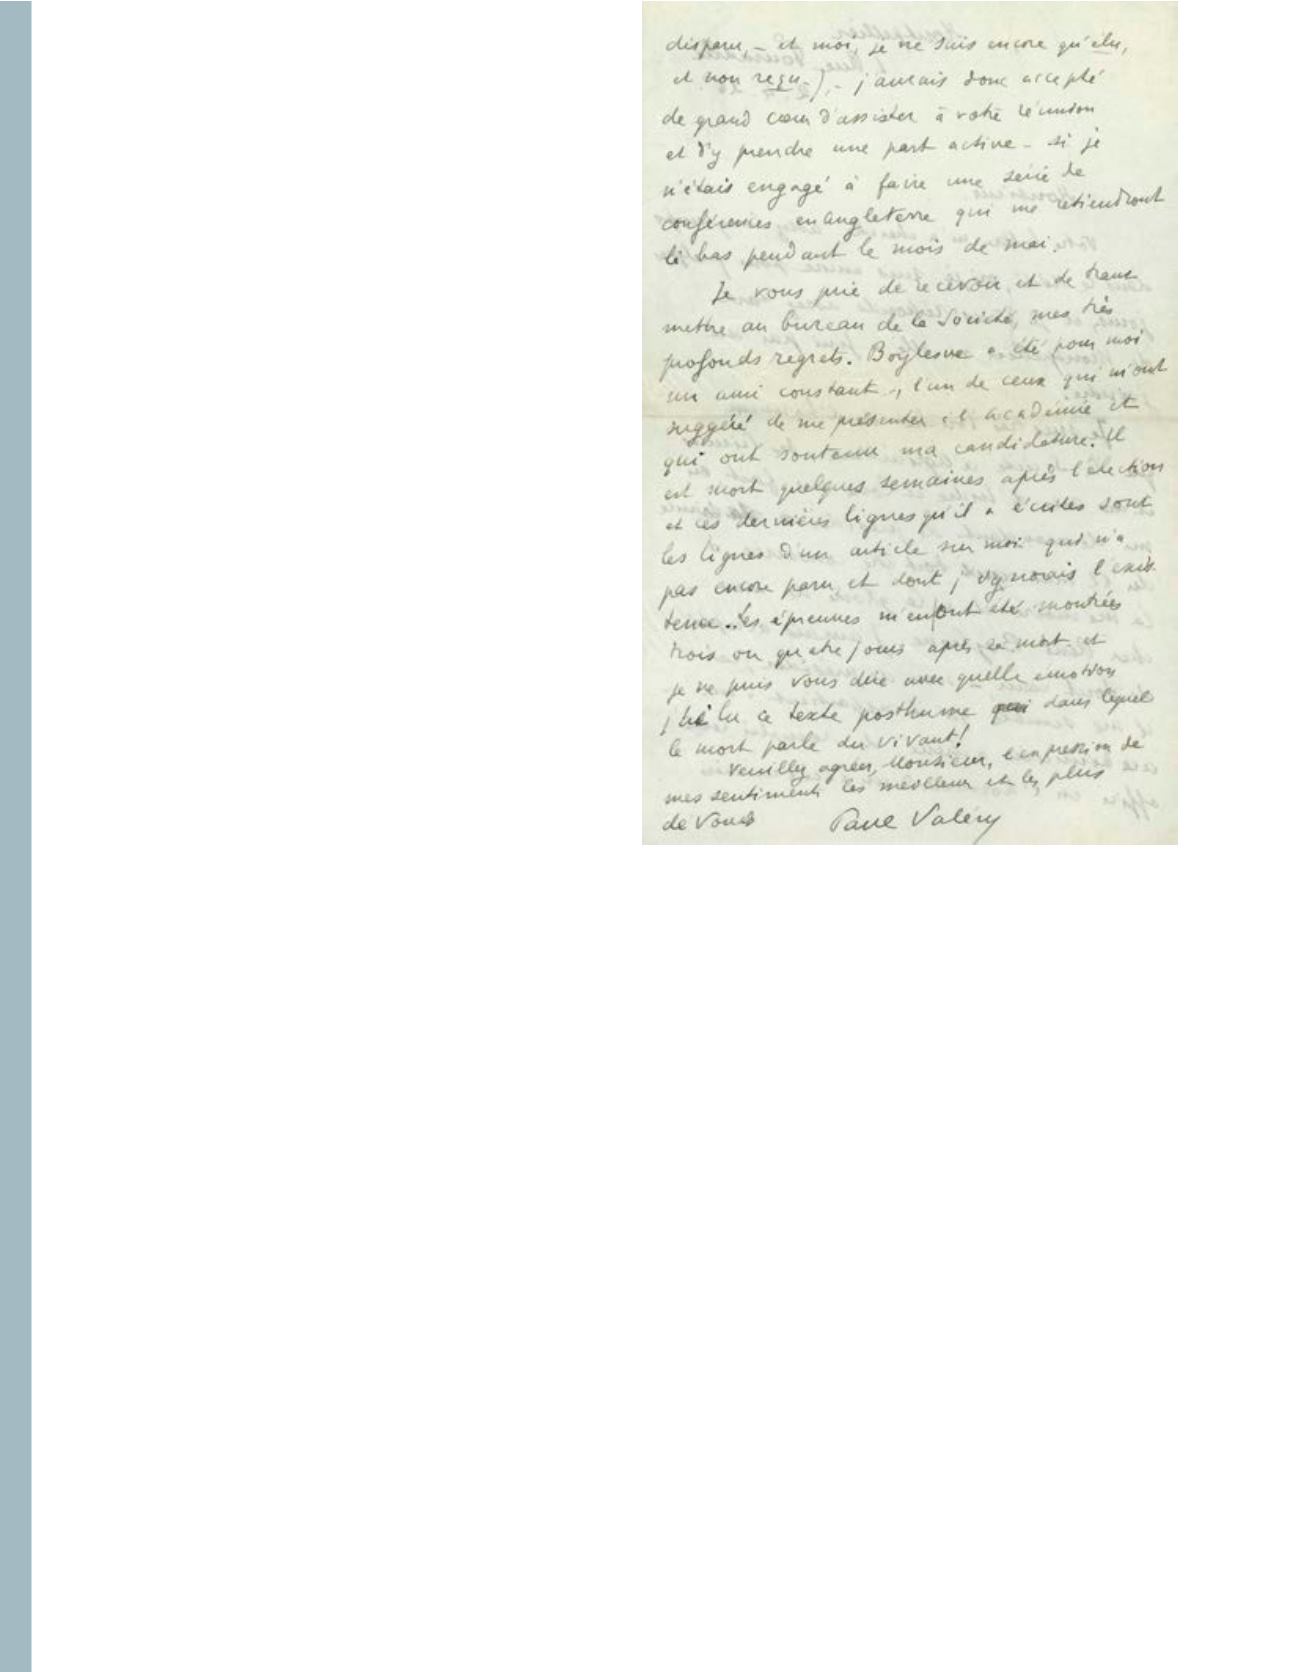 disparu, – et moi, je ne suis encore qu'élu,
et non reçu –), – j'aurais donc accepté
de grand cœur d'assister à votre réunion
et d'y prendre une part active – si je
n'étais engagé à faire une série de
conférences en Angleterre qui me retiendront
là bas pendant le mois de mai.
Je vous prie de recevoir et de trans
mettre au bureau de la Société, mes très
profonds regrets. Boylesve a été pour moi
un ami constant –, l'un de ceux qui m'ont
suggéré de me présenter à l'académie et
qui ont soutenu ma candidature. Il
est mort quelques semaines après l'élection
et les dernières lignes qu'il a écrites sont
les lignes d'un article sur moi qui n'a
pas encore paru et dont j'ignorais l'exis-
tence.. Les épreuves m'en ont été montrées
trois ou quatre jours après sa mort et
je ne puis vous dire avec quelle émotion
j'ai lu ce texte posthume dans lequel
le mort parle du vivant!
Veuillez agréer, Monsieur, l'expression de
mes sentiments les meilleurs et les plus
dévoués
Paul Valéry